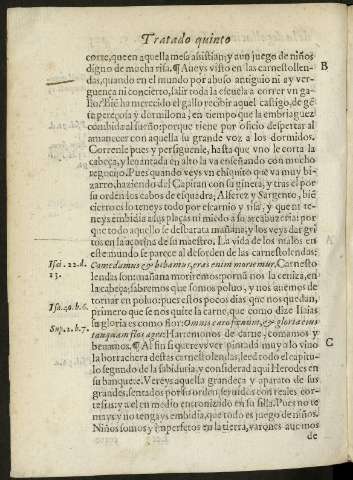 Tratado quinto
corte, que en aquella mesa asistian; y aun juego de niños
digno de mucha risa. ¶ Aueys visto en las carnestollen-
das, quando en el mundo por abuso antiguio ni ay ver-
guença ni concierto, salir toda la escuela a correr vn ga-
llo? Biē ha merecido el gallo recibir aquel castigo, de gē-
te pereçosa y dormilona, en tiempo que la embriaguez
combida al sueño: porque tiene por oficio despertar al
amanecer con aquella su grande voz a los dormidos.
Correnle pues y persiguenle, hasta que vno le corta la
cabeça, y leuantada en alto la va enseñando con mucho
regocijo. Pues quando veys vn chiquito que va muy bi-
zarro, haziendo del Capitan con su gineta; y tras el por
su orden los cabos de esquadra; Alferez y Sargento, biē
cierto es lo teneys todo por escarnio y risa; y que ni te-
neys embidia a sus plaças ni miedo a su arcabuzeria: por
que todo aquello se desbarata mañana; y los veys dar gri
tos en la açotina de su maestro. La vida de los malos en
este mundo se parece al desorden de las carnestolendas:
Isai. 22. d. Comedamus & bibamus, cras enim moriemur. Carnesto-
13. lendas son: mañana moriremos: pornā nos la ceniza, en
la cabeça; sabremos que somos poluo, y nos auemos de
tornar en poluo: pues estos pocos dias que nos quedan,
Isa. 40. b. 6. primero que se nos quite la carne, que como dize Isaias
su gloria es como flor: Omnis caro fœnum, & gloria eius
Sap. 2. b. 7. tanquam flos agri: Hartemonos de carne, comamos y
beuamos. ¶ Al fin si quereys ver pintada muy a lo viuo
la borrachera destas carnestolendas, leed todo el capitu-
lo segundo de la sabiduria, y considerad aqui Herodes en
su banquete. Vereys aquella grandeça y aparato de sus
grandes, sentados por su orden, seruidos con reales cor-
tesias: y a el en medio entronizado en su silla. Pues no te
mays y no tengays embidia, que todo es juego de niños.
Niños somos y imperfetos en la tierra, varones auemos
de
B
C